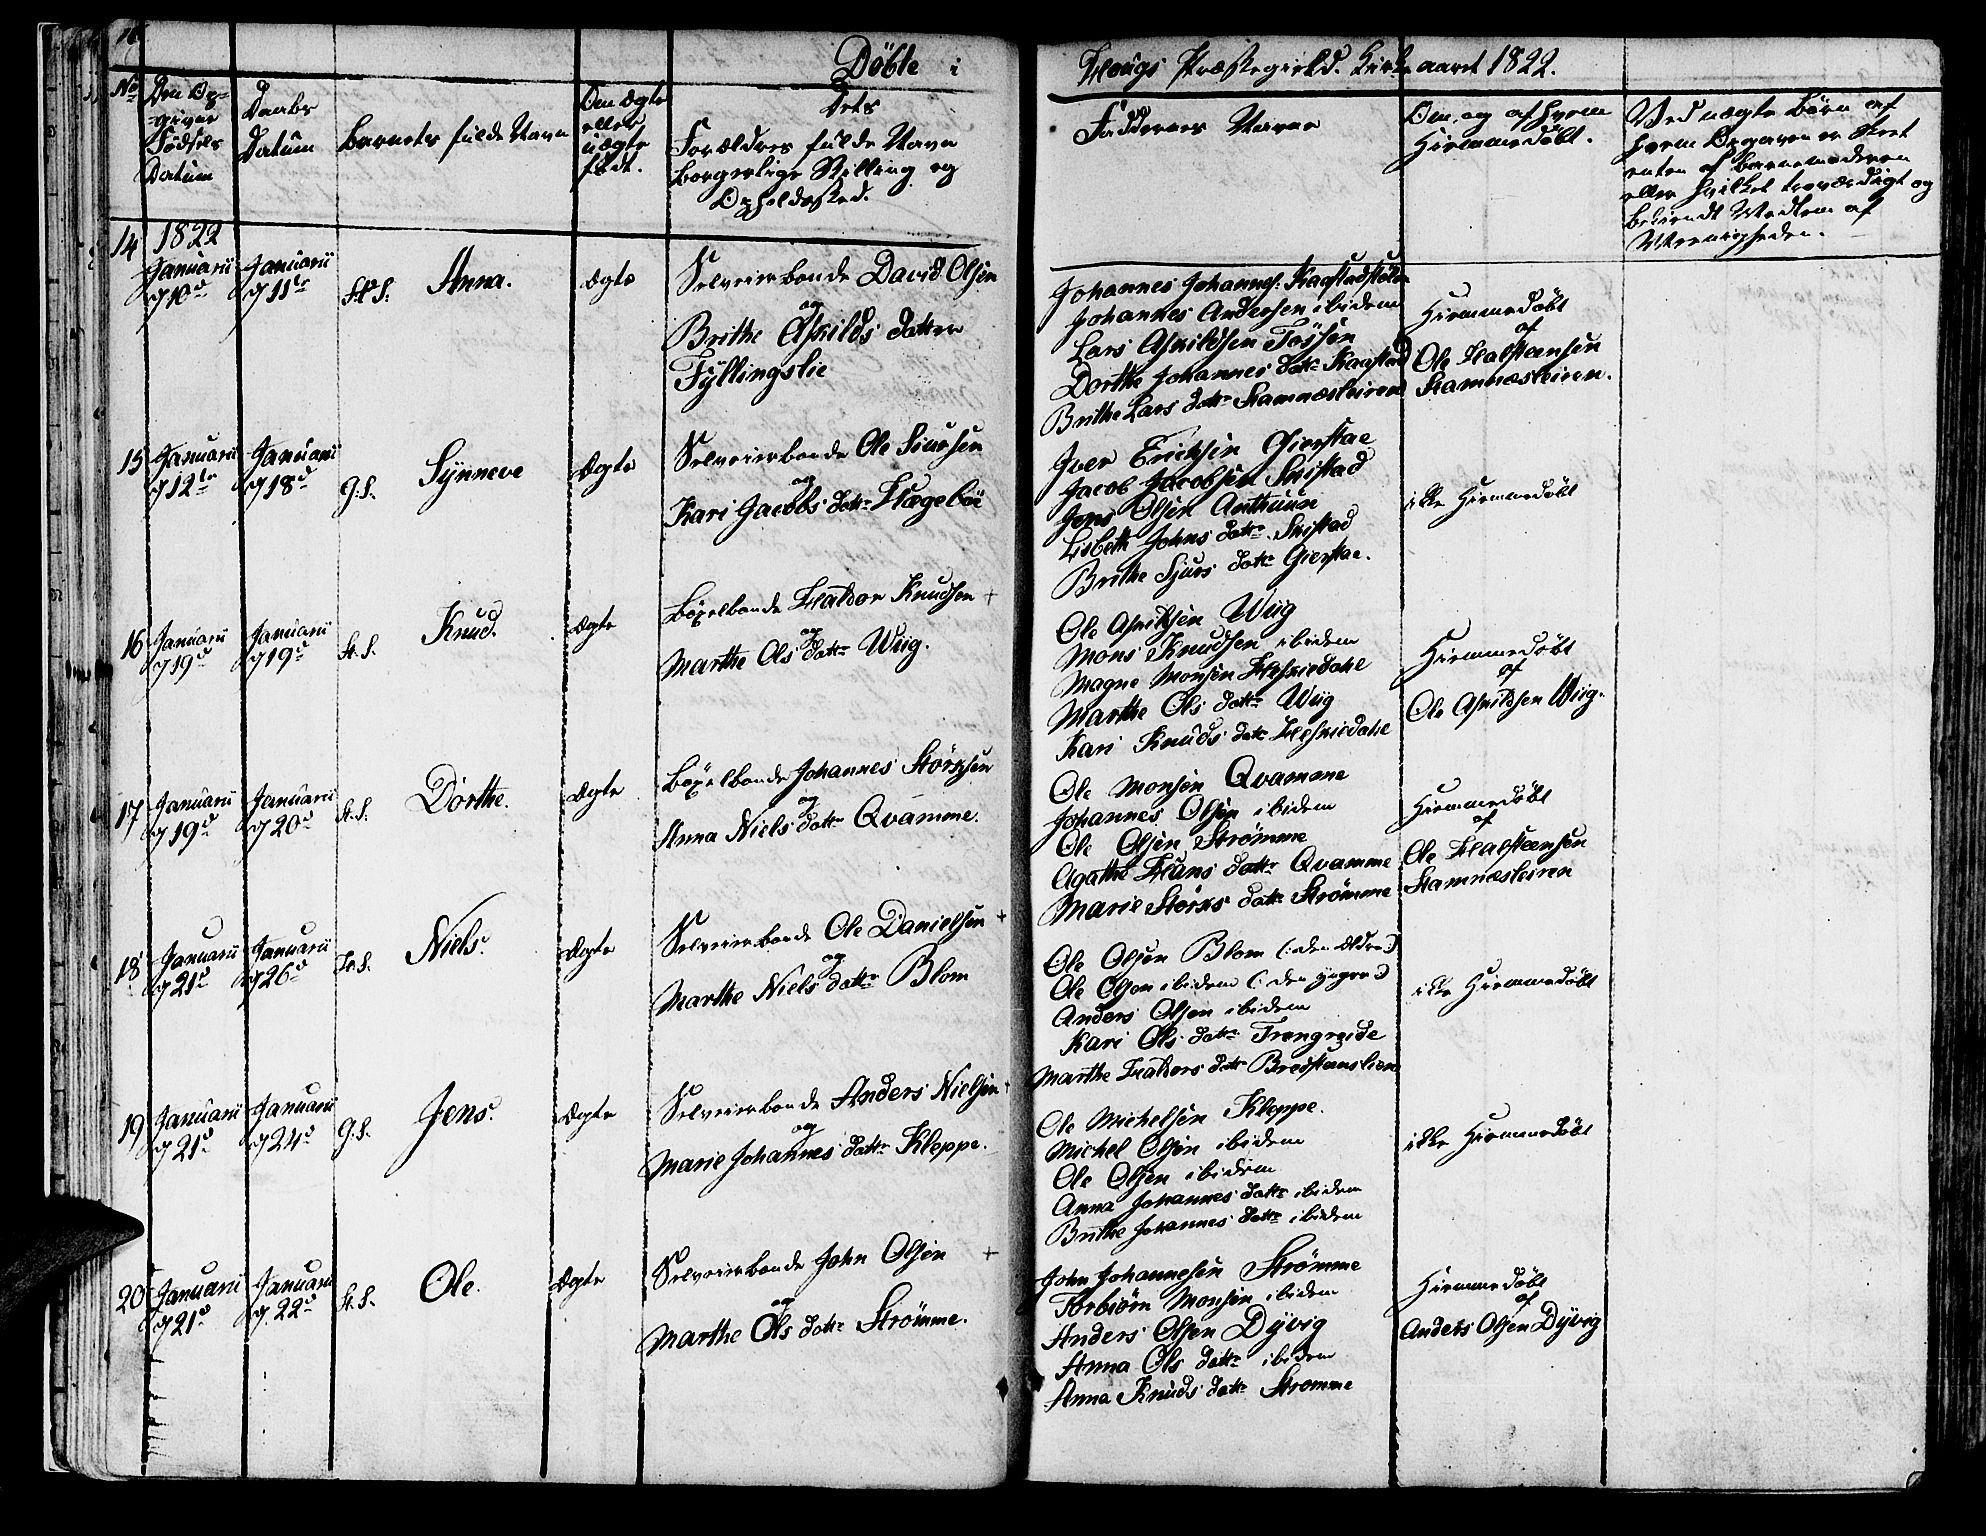 16
Döbte i
Hougs Præstegield. Kirkeaaret 1822.
No
Den Op-
givne
Födsels
Datum
Daabs
Datum
Barnets fulde Navn
Om ægte
eller
uægte
födt.
Dets
Forældres fulde Navn
borgerlige Stilling og
Opholdssted.
Faddernes Navne
Om, og af hvem
Hiemmedöbt.
Ved uægte Börn af
hvem Opgaven er skeet
enten af Barnemoderen
eller hvilket troværdigt og
bekiendt Medlem af
Menigheden.
1822
14 Januarii d 10d
Januarii d 11te
St. S.
Anna.
Ægte
Selveierbonde David Olsen
og
Brithe Askilds datter
Fyllingslie
Johannes Johannes: Kaastadstölen
Johannes Andersen ibidem
Lars Askildsen Tössen
Dorthe Johannes datr Kaastad
Brithe Lars datr Stamnæsleiren
Hiemmedöbt
af
Ole Halsteensen
Stamnæsleiren.
15 Januarii d 12te
Januarii d 18d
G. S.
Synneve
Ægte
Selveierbonde Ole Siursen
og
Kari Jacobs datr Hægeböe
Iver Ericksen Gierstae
Jacob Jacobsen Skistad
Jens Olsen Anthuun
Lisbeth Johns datr Skistad
Brithe Sjurs datr Gierstae.
ikke Hiemmedöbt
16 Januarii d 19d
Januarii d 19d
St. S.
Knud.
Ægte
Böxelbonde Haldor Knudsen +
og
Marthe Ols datr Wiig.
Ole Askildsen Wiig
Mons Knudsen ibidem
Magne Monsen Hesiedahl
Marthe Ols datr Wiig
Kari Knuds datr Hesiedahl
Hiemmedöbt
af
Ole Askildsen Wiig.
17 Januarii d 19d
Januarii d 20d
St. S.
Dorthe.
Ægte
Böxelbonde Johannes Störksen
og
Anna Niels datr Qvamme.
Ole Monsen Qvamme
Johannes Olsen ibidem
Ole Olsen Strømme
Agathe Hans datr Qvamme
Marie Störks datr Strømme
Hiemmedöbt
af
Ole Halsteensen
Stamnæsleiren
18 Januarii d 21d
Januarii d 26d
Niels.
Ægte
Selveierbonde Ole Danielsen +
og
Marthe Niels datr Blom
Ole Olsen Blom (: den ældre :)
Ole Olsen ibidem (: den yngre :)
Anders Olsen ibidem
Kari Ols datr Trengreide
Marthe Haldors datr Bredsteenslien
ikke Hiemmedöbt
19 Januarii d 21d
Januarii d 24d
G. S.
Jens.
Ægte
Selveierbonde Anders Nielsen +
og
Marie Johannes datr Kleppe.
Ole Michelsen Kleppe.
Michel Olsen ibidem
Ole Olsen ibidem
Anna Johannes datr ibidem
Brithe Johannes datr ibidem
ikke Hiemmedöbt
20 Januarii d 21d
Januarii d. 22d
St. S.
Ole.
Ægte
Selveierbonde John Olsen +
og
Marthe Ols datr Strømme.
John Johannesen Strømme
Torbiörn Monsen ibidem
Anders Olsen Dyvig
Anna Ols datr ibidem
Anna Knuds datr Strømme
Hiemmedöbt
af
Anders Olsen Dyvig